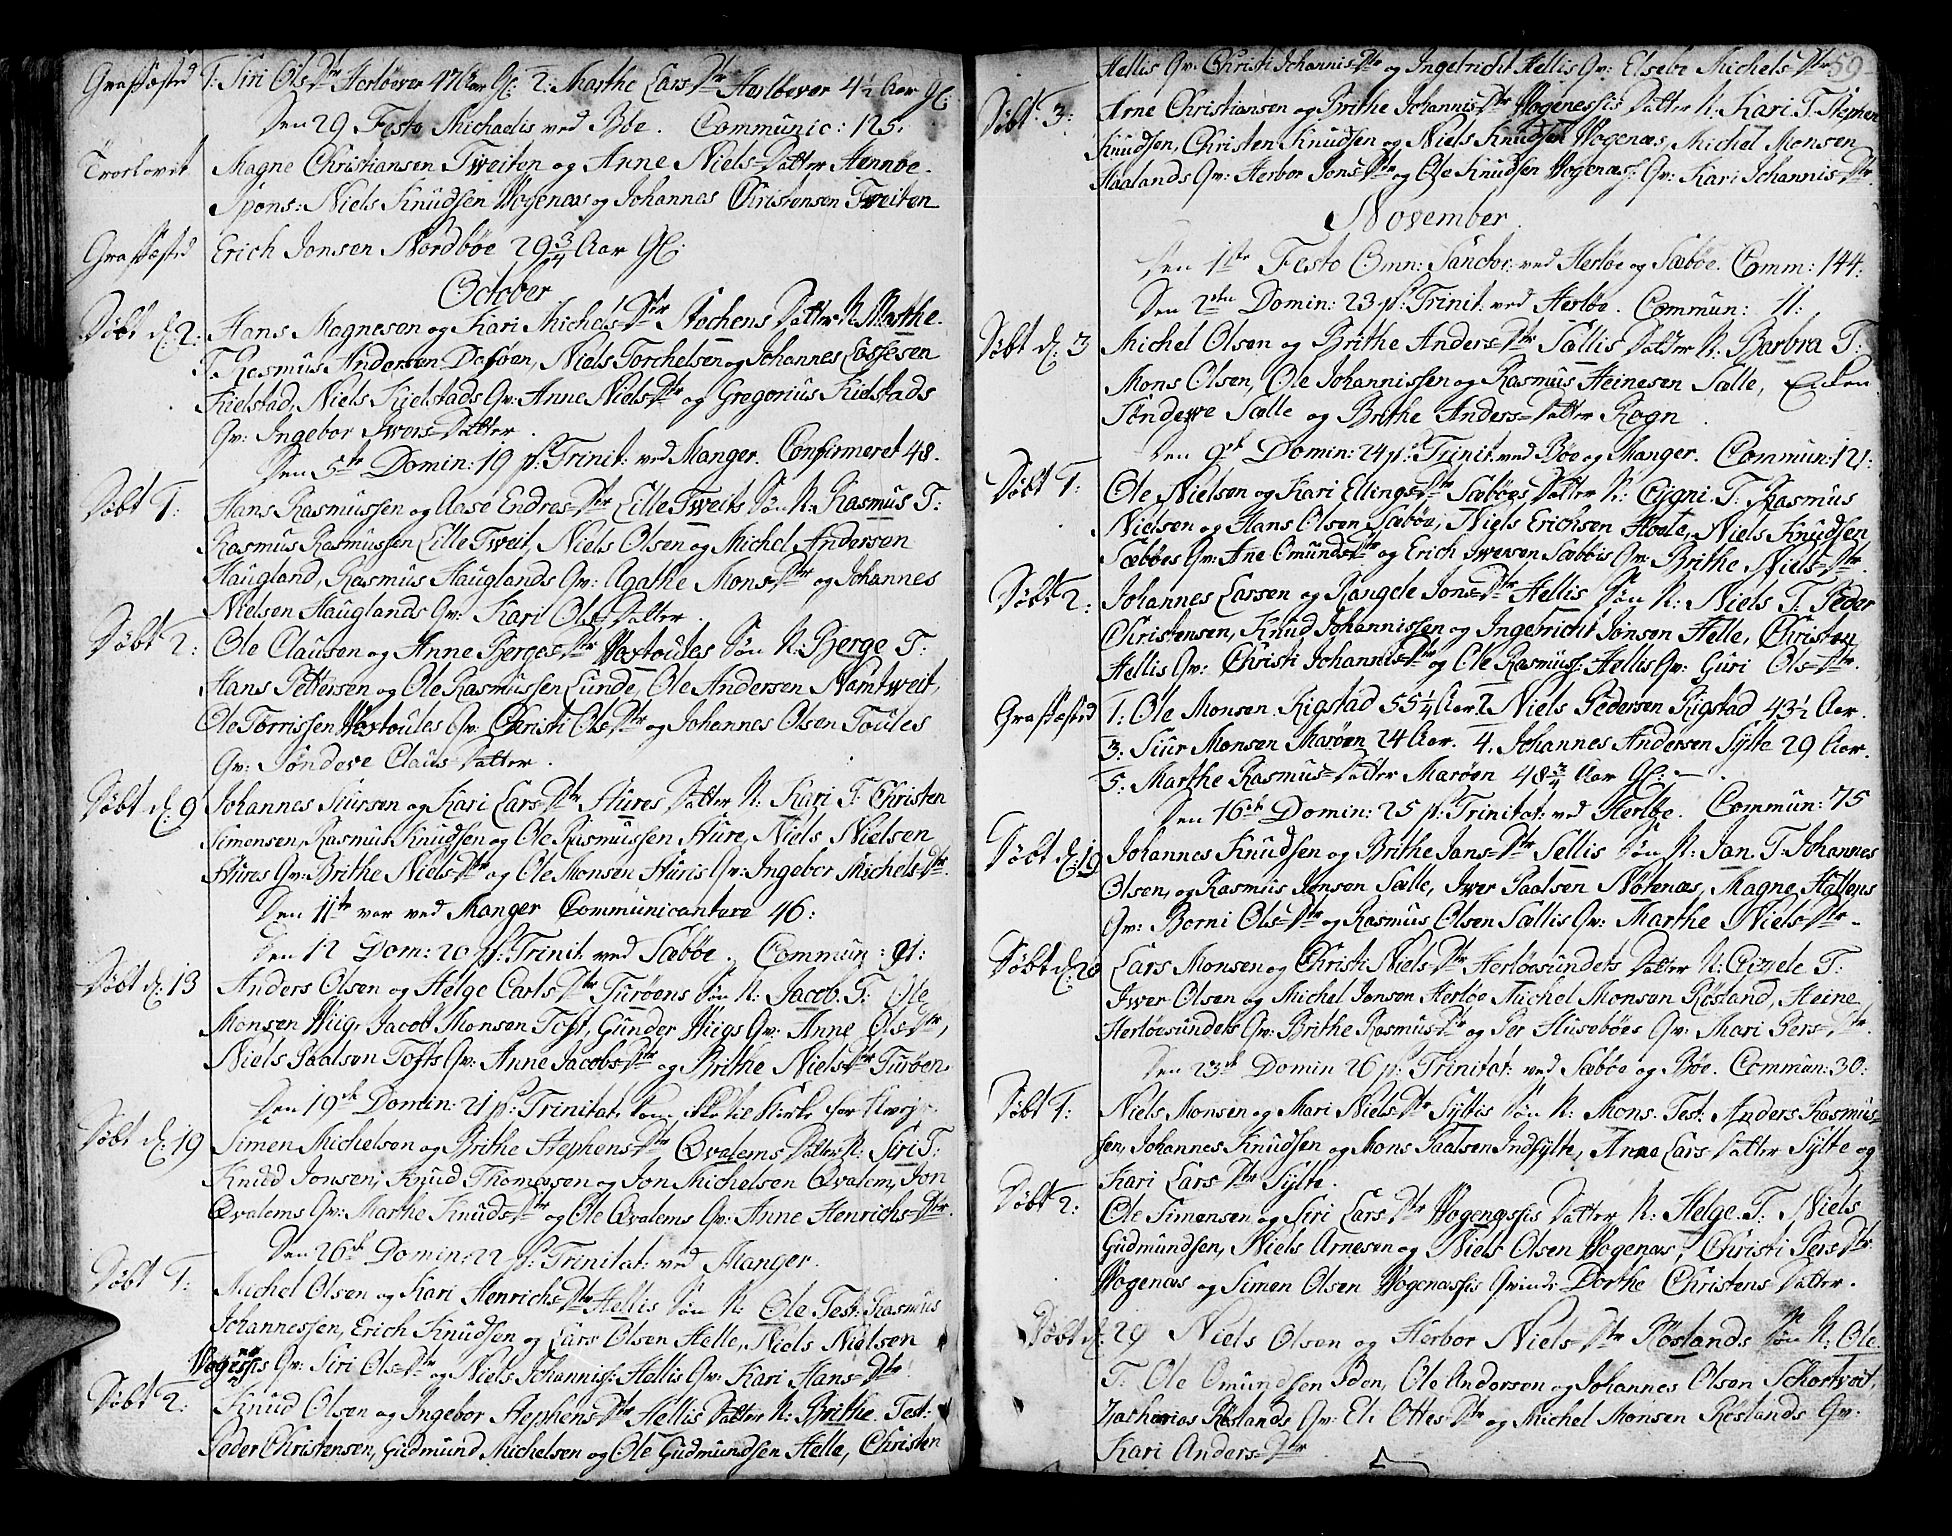 Graffæsted 1. Siri Ols Dtr Herløever 47 Aar Gl: 2. Marthe Lars Dtr Herløever 4 1/2 Aar Gl:
Den 29 Festo Michaelis ved Bøe. Communic: 125.
Troelovet Magne Christiansen Tweiten og Anne Niels Datter Hennøe.
Spons: Niels Knudsen Wogenæs og Johannes Christensen Tweiten
Graffæsted Erich Jonsen Nordbøe 29 3/4 Aar Gl:
October
Døbt d: 2. Hans Mognesen og Kari Michels Dtr Datter N. Marthe.
T. Rasmus Andersen Niels Torchelsen og Johannes
Kielstad, Niels Kielstads Qv: Anne Niels Dtr og Gregorius Kielstads
Qv: Ingebor Iwers Datter.
Den 5te Domin: 19 p. Trinit: ved Manger. Confirmeret 48.
Døbt 1: Hans Rasmussen og Aase Endres Dtr Lille Tweits Søn N. Rasmus T:
Rasmus Rasmussen Lille Tweit, Niels Olsen og Michel Andersen
Haugland, Rasmus Hauglands Qv: Agathe Mons Dtr og Johannes
Nielsen Hauglands Qv: Kari Ols Datter.
Døbt 2: Ole Clausen og Anne Berges Dtr Woxtoules Søn N. Berge T:
Hans Pettersen og Ole Rasmussen Lunde, Ole Andersen Namtweit,
Ole Tørrissen Woxtoules Qv: Christi Ols Dtr og Johannes Olsen Toules
Qv: Søndeve Claus Datter.
Døbt d: 9 Johannes Siursen og Kari Lars Dtr Hures Datter N. Kari T: Christen
Simensen, Rasmus Knudsen og Ole Rasmussen Hure, Niels Nielsen
Hures Qv: Brithe Niels Dtr og Ole Monsen Huris Qv: Ingebor Michels Dtr.
Den 11te var ved Manger Communicantere 46:
Den 12 Dom: 20 p. Trinit. ved Sæbøe. Commun: 91:
Døbt d: 13 Anders Olsen og Helge Carls Dtr Turøens Søn N. Jacob. T: Ole
Monsen Wiig, Jacob Monsen Toft, Gunder Wiigs Qv: Anne Ols Dtr,
Niels Paalsen Tofts Qv: Anne Jacobs Dtr og Brithe Niels Dtr Turøen.
Den 19de Domin: 21 p. Trinitat. kom ikke til Kirke for
Døbt d: 19 Simen Michelsen og Brithe Stephens Dtr Qvalems Datter N. Siri T:
Knud Jonsen, Knud Thomæsen og Jon Michelsen Qvalem, Jon
Qvalems Qv: Marthe Knuds Dtr og Ole Qvalems Qv: Anne Henrichs Dtr.
Den 26de Domin: 22 p. Trinitat: ved Manger.
Døbt 1: Michel Olsen og Kari Henrichs Dtr Hellis Søn N: Ole Test: Rasmus
Johannessen, Erich Knudsen og Lars Olsen Helle, Niels Nielsen
Wognæsis Qv: Siri Ols Dtr og Niels Johanniss: Hellis Qv: Kari Hans Dtr.
Døbt 2: Knud Olsen og Ingebor Stephens Dtr Hellis Datter N: Brithe. Test:
Peder Christensen, Gudmund Michelsen og Ole Gudmundsen Helle, Christen
59
Hellis Qv: Christi Johannis Dtr og Ingebricht Hellis Qv: Elsebe Michels Dtr
Døbt: 3: Arne Christiansen og Brithe Johannis Dtr Wogenessis Datter N: Kari T. Stephen
Knudsen, Christen Knudsen og Niels Knudsen Wogenæs, Michel Monsen
Haalands Qv: Herbor Jons Dtr og Ole Knudsen Wogenæs: Qv: Kari Johannis Dtr.
November.
Den 1ste Festo Omn: Sanctor: ved Herløe og Sæbøe. Comm: 144.
Den 2den Domin: 23 p. Trinit: ved Herløe. Commun: 11:
Døbt d: 3 Michel Olsen og Brithe Anders Dtr Sællis Datter N: Barbra T:
Mons Olsen, Ole Johannissen og Rasmus Heinesen Sælle,
Søndewe Sælle og Brithe Anders Datter Rogn.
Den 9de Domin: 24 p. Trinit: ved Bøe og Manger. Commun: 121:
Døbt 1: Ole Nielsen og Kari Ellings Dtr Sæbøes Datter N: Cygni. T: Rasmus
Nielsen og Hans Olsen Sæbøe, Niels Erichsen Hoele, Niels Knudsen
Sæbøes Qv: Ane Omunds Dtr og Erich Iwersen Sæbøis Qv: Brithe Niels Dtr.
Døbt 2: Johannes Larsen og Rangele Jons Dtr Hellis Søn N: Niels T: Peder
Christensen, Knud Johannissen og Ingebricht Jonsen Helle, Christen
Hellis Qv: Christi Johannis Dtr og Ole Rasmuss: Hellis Qv: Guri Ols Dtr.
Graffæsted 1. Ole Monsen Rigstad 55 1/4 Aar 2 Niels Pedersen Rigstad 43 1/2 Aar.
3. Siur Monsen Marøen 24 Aar. 4. Johannes Andersen Sylte 29 Aar.
5. Marthe Rasmus Datter Marøen 48 3/4 Aar Gl:
Den 16de Domin: 25 p. Trinitat: ved Herløe. Commun: 75
Døbt d: 19 Johannes Knudsen og Brithe Jans Dtr Sellis Søn N: Jan. T: Johannes
Olsen, og Rasmus Jonsen Sælle, Iwer Paalsen Nøtenæs, Magne Hattens
Qv: Borni Ols Dtr og Rasmus Olsen Sællis Qv: Marthe Niels Dtr
Døbt d: 20 Lars Monsen og Christi Niels Dtr Herløesundets Datter N: Cizele T:
Iwer Olsen og Michel Jonsen Herløe Michel Monsen Røsland, Heine
Herløesundets Qv: Brithe Rasmus Dtr og Per Husebøes Qv: Mari Pers Dtr.
Den 23de Domin 26 p: Trinitat: ved Sæbøe og Bøe. Commun: 30:
Døbt 1: Niels Monsen og Mari Niels Dtr Syltis Søn N: Mons. Test: Anders Rasmus-
sen, Johannes Knudsen og Mons Paalsen Indsylte, Anne Lars Datter Sylte og
Kari Lars Dtr Sylte.
Døbt 2: Ole Simensen og Siri Lars Dtr Wogenæssis Datter N: Helge. T: Niels
Gudmundsen, Niels Arnesen og Niels Olsen Wogenæs, Christi Pers Dtr
Wogenæs og Simen Olsen Wogenæssis Qvinde Dorthe Christens Datter.
Døbt d: 29 Niels Olsen og Herbor Niels Dtr Røslands Søn N: Ole.
T: Ole Omundsen Iden, Ole Andersen og Johannes Olsen Schortveit,
Zacharias Røslands Qv: Eli Ottes Dtr og Michel Monsen Røslands Qv:
Kari Anders Dtr